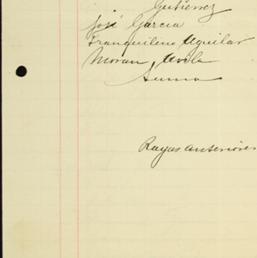 Gutierrez
José Garcia
Tranquilino Aguilar
Moran, Avila
Suma
Rayas anteriores